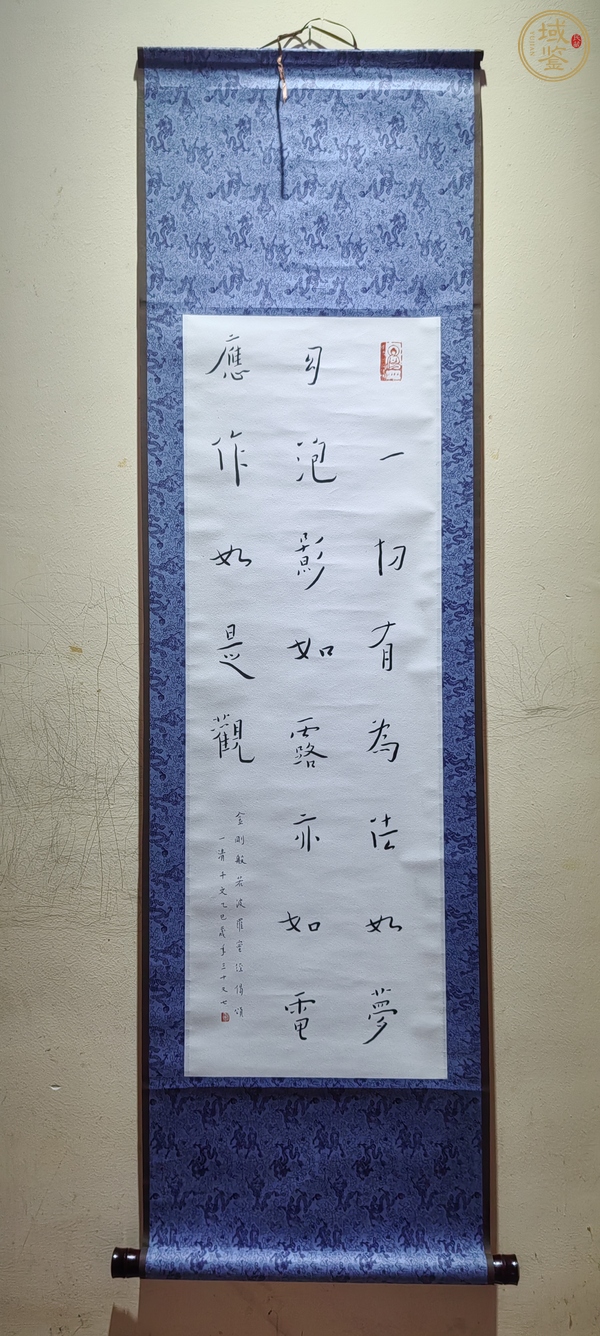 一切有為法如夢
幻泡影如露亦如電
應作如是觀
金剛般若波羅蜜經偈頌
一青 乙巳歲年三十又七
域鑒